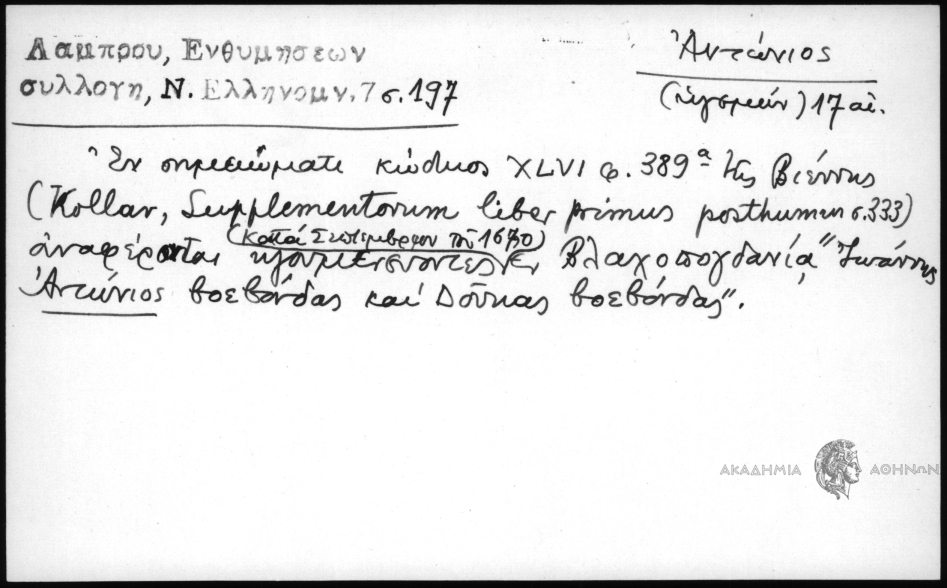 Λαμπρου, Ενθυμησεων
συλλογη, Ν. Ελληνομν. 7 σ. 197
Ἀντώνιος
(ἡγεμών) 17 αἰ.
Ἐν σημειώματι κώδικος XLVI φ. 389α τῆς Βιέννης
(Kollar, Supplementorum liber primus posthumus σ. 333)
(κατά Σεπτέμβριον τοῦ 1670)
ἀναφέρονται ἡγεμονεύοντες ἐν Βλαχοπογδανίᾳ "Ἰωάννης
Ἀντώνιος βοεβόνδας καί Δούκας βοεβόνδας".
ΑΚΑΔΗΜΙΑ ΑΘΗΝΩΝ